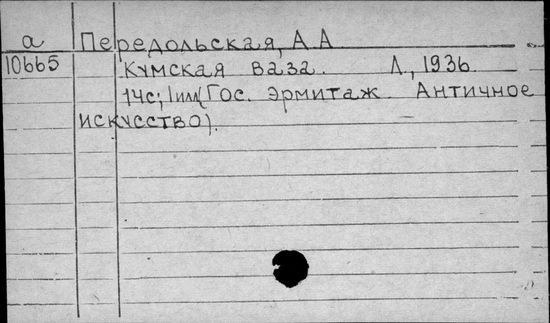 а Передольская, А А
10665 Кумская ваза. Л., 1936
14с; 1 илл (Гос. эрмитаж. Античное
искусство).